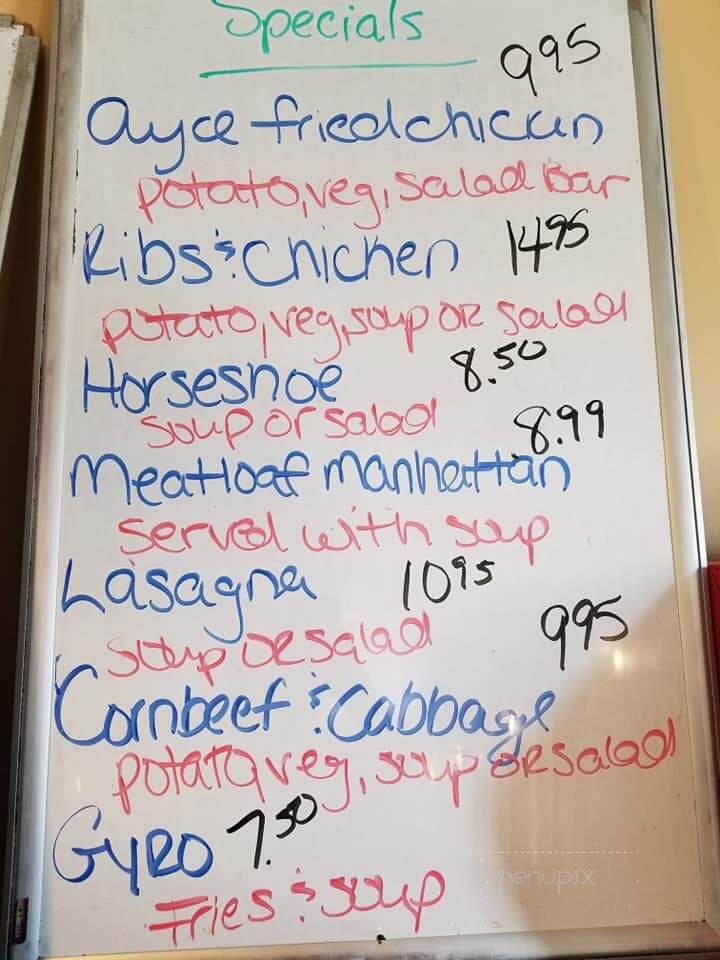 Specials
995
Ayce fried chicken
potato, veg, salad Bar
Ribs & chicken 1495
potato, veg, soup OR salad
Horseshoe 8.50
soup or salad
8.99
Meatloaf manhattan
served with soup
Lasagna 1095
soup OR salad
995
Cornbeef & Cabbage
potato, veg, soup OR salad
GYRO 7.50
Fries & soup
menupix